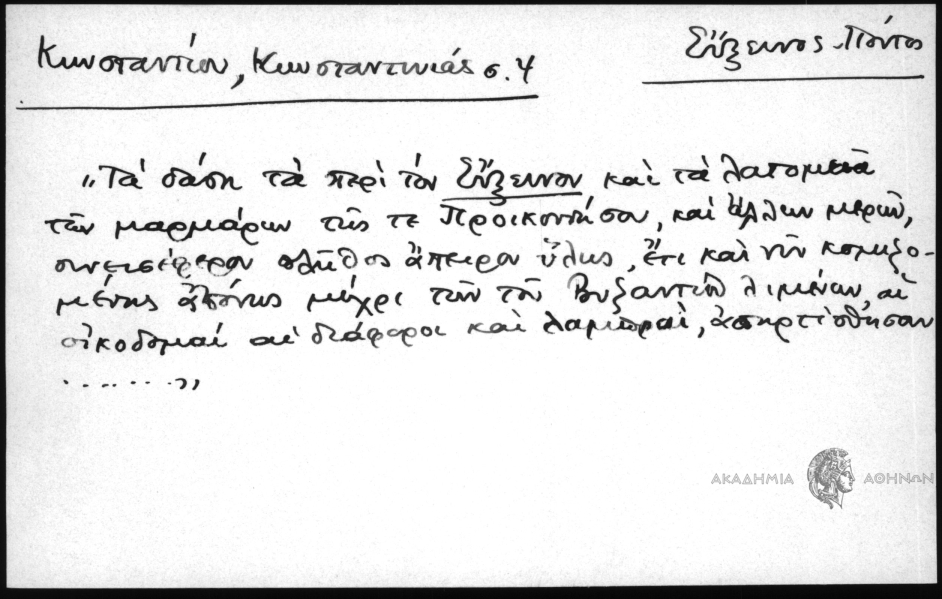 Κωνσταντίου, Κωνσταντινιάς σ. 4
Εὔξεινος Πόντος
„Τὰ δάση τὰ περὶ τὸν Εὔξεινον καὶ τὰ λατομεῖα
τῶν μαρμάρων τῆς τε Προικοννήσου, καὶ ἄλλων μερῶν,
συνεισέφερον πλῆθος ἄπειρον ὕλης, ἔτι καὶ νῦν κομιζο-
μένης ἀπόνως μέχρι τῶν τοῦ Βυζαντίου λιμένων, αἱ
οἰκοδομαὶ αἱ διάφοροι καὶ λαμπραὶ, ἀπηρτίσθησαν
.........”
ΑΚΑΔΗΜΙΑ ΑΘΗΝΩΝ